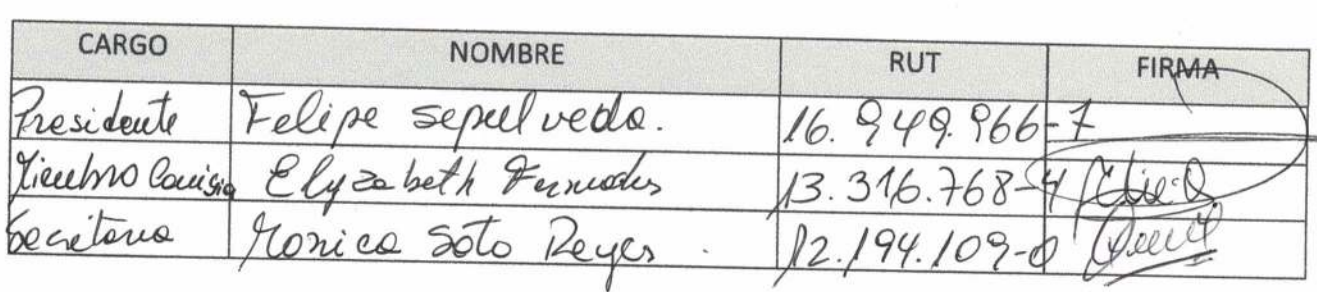 CARGO NOMBRE RUT FIRMA
Presidente Felipe sepulveda. 16.949.966-7
Miembro Comision Elyzabeth 13.316.768-4
Secretaria Monica Soto Reyes. 12.194.109-0